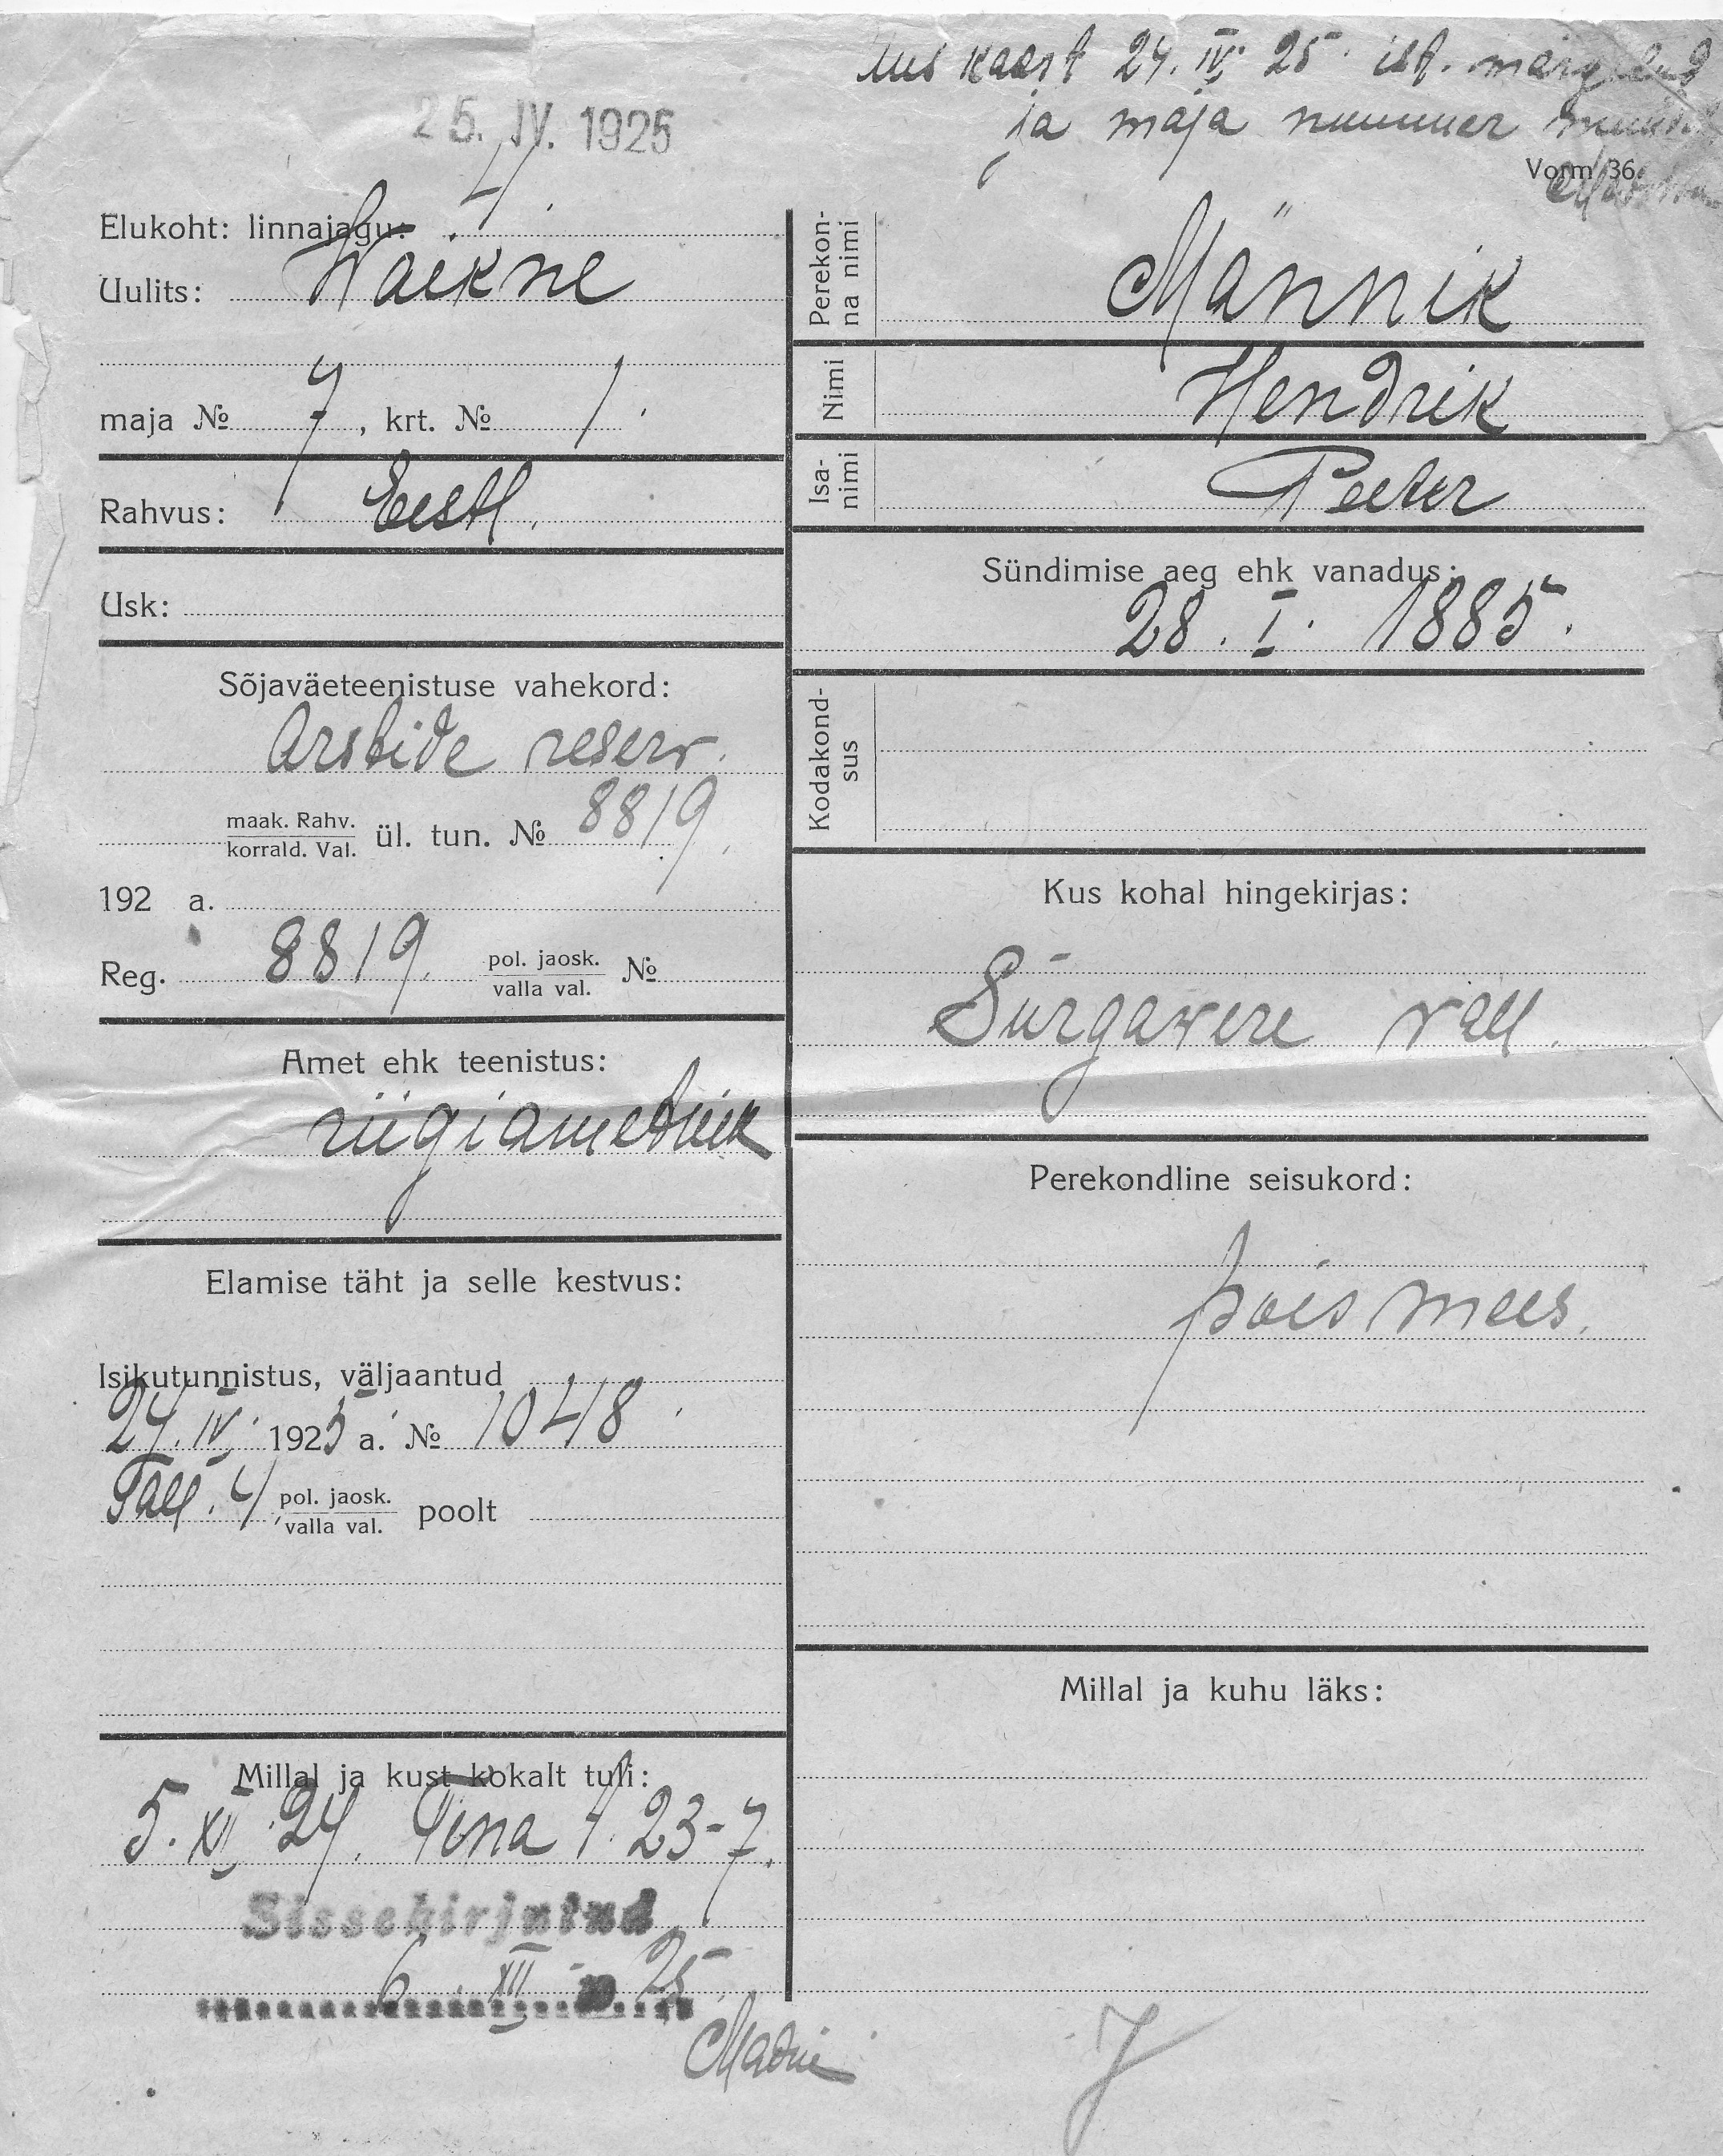 Uus kaart 24. IV. 25 ist.
ja maja nummer
25. IV. 1925
Vorm 36.
Elukoht: linnajagu: 4.
Uulits: Waikne
maja № 7, krt. № 1.
Rahvus: Eestl.
Usk:
Sõjaväeteenistuse vahekord:
Arstide reserv.
maak. Rahv.
korrald. Val. ül. tun. № 8819.
192 a.
Reg. 8819. pol. jaosk.
valla val. №
Amet ehk teenistus:
riigiametnik
Elamise täht ja selle kestvus:
Isikutunnistus, väljaantud
24. IV. 1925 a. № 1048.
Tall. 4 pol. jaosk.
valla val. poolt
Millal ja kust kokalt tuli:
5. XII. 24. Tina t. 23-7.
Sissekirjutud
6. XII 25
Perekon-
na nimi Männik
Nimi Hendrik
Isa-
nimi Peeter
Sündimise aeg ehk vanadus:
28. I. 1885.
Kodakond-
sus
Kus kohal hingekirjas:
Sürgawere vall.
Perekondline seisukord:
poismees.
Millal ja kuhu läks: